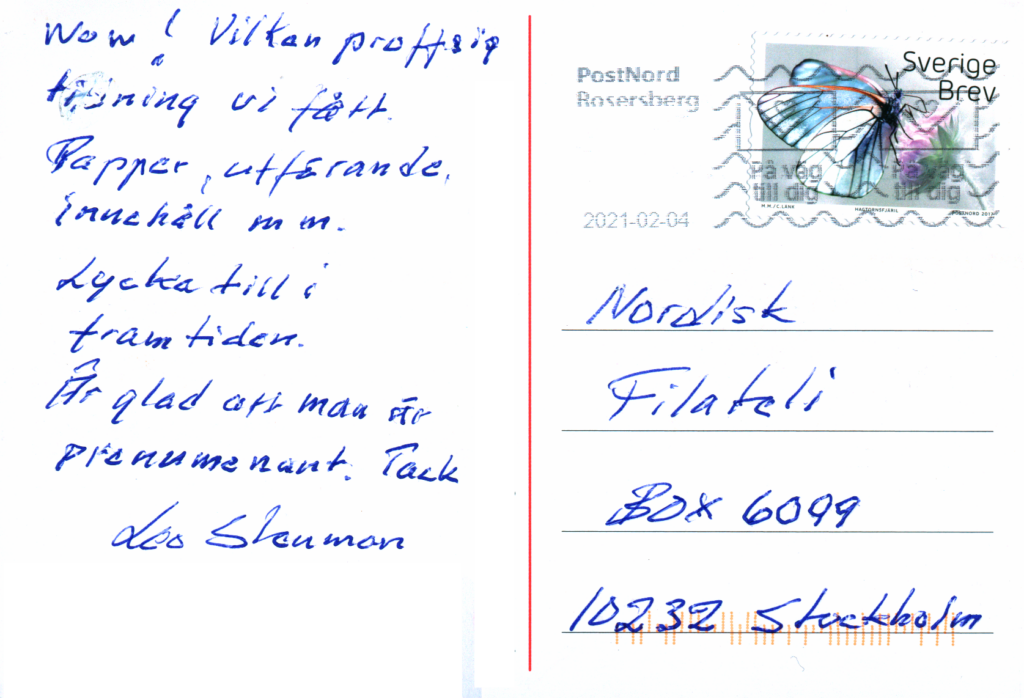 Wow! Vilken proffsig
tidning vi fått.
Papper, utförande,
innehåll m m.
Lycka till i
framtiden.
Är glad att man är
prenumenant. Tack
Leo Stenman
PostNord
Rosersberg
2021-02-04
Sverige
Brev
På väg
till dig
På väg
till dig
M.M./C.LANK HAGTORNSFJÄRIL POSTNORD 2017
Nordisk
Filateli
BOX 6099
10232 Stockholm